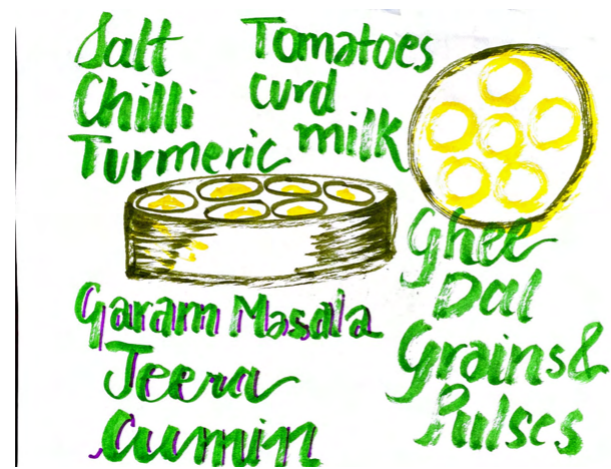 Salt
Chilli
Turmeric
Tomatoes
curd
milk
Garam Masala
Jeera
Cumin
Ghee
Dal
Grains &
Pulses